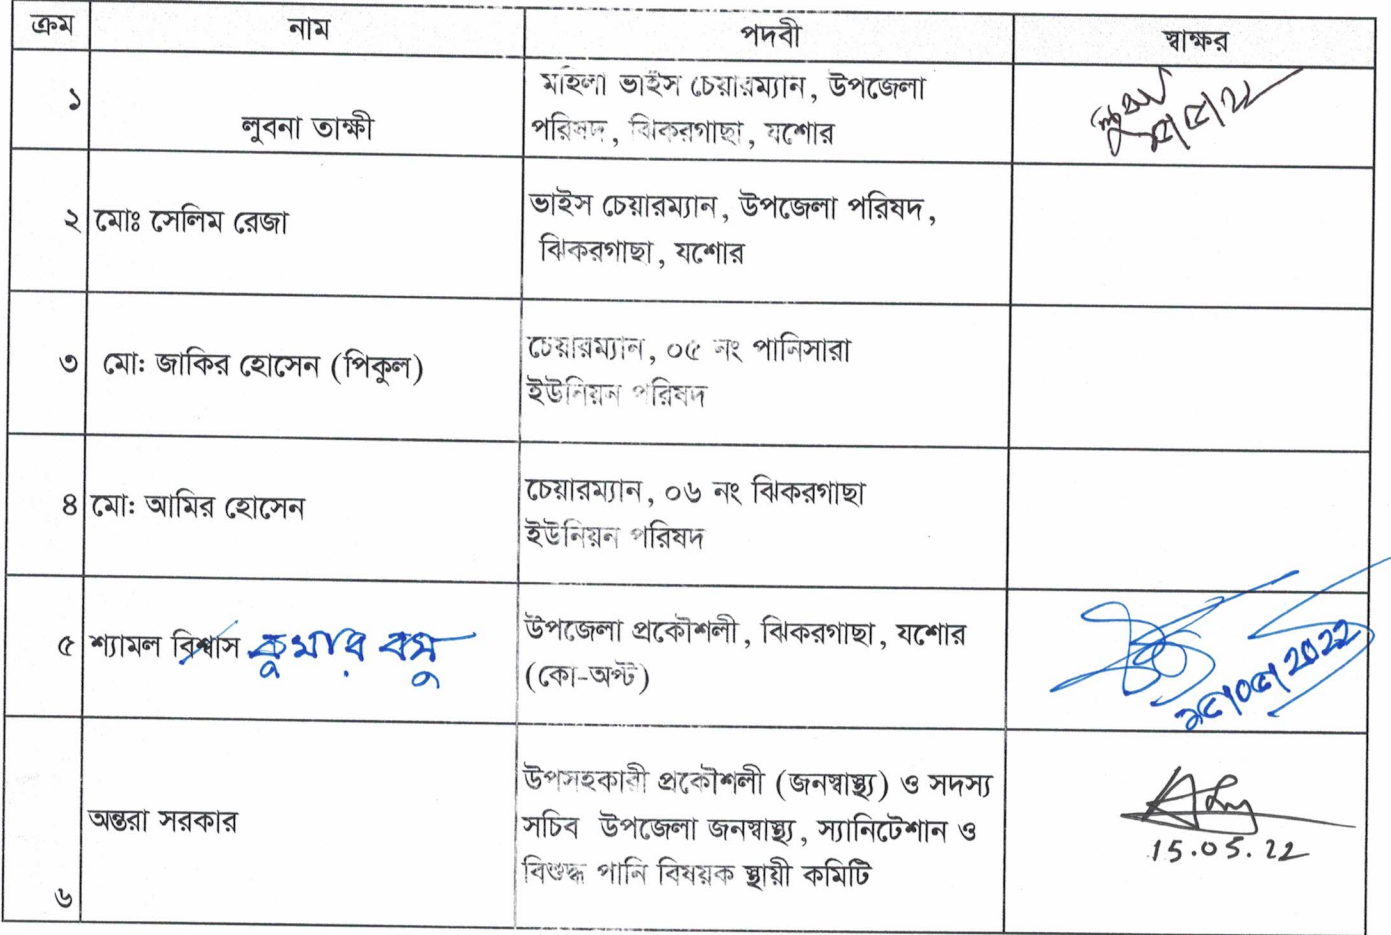 ক্রম নাম পদবী স্বাক্ষর
১ লুবনা তাক্ষী মহিলা ভাইস চেয়ারম্যান, উপজেলা
পরিষদ, ঝিকরগাছা, যশোর
২ মোঃ সেলিম রেজা ভাইস চেয়ারম্যান, উপজেলা পরিষদ,
ঝিকরগাছা, যশোর
৩ মো: জাকির হোসেন (পিকুল) চেয়ারম্যান, ০৫ নং পানিসারা
ইউনিয়ন পরিষদ
৪ মো: আমির হোসেন চেয়ারম্যান, ০৬ নং ঝিকরগাছা
ইউনিয়ন পরিষদ
৫ শ্যামল বিশ্বাস কুমার বসু উপজেলা প্রকৌশলী, ঝিকরগাছা, যশোর
(কো-অপ্ট) ১৫/০৫/2022
৬ অন্তরা সরকার উপসহকারী প্রকৌশলী (জনস্বাস্থ্য) ও সদস্য
সচিব উপজেলা জনস্বাস্থ্য, স্যানিটেশান ও
বিশুদ্ধ পানি বিষয়ক স্থায়ী কমিটি
15.05.22